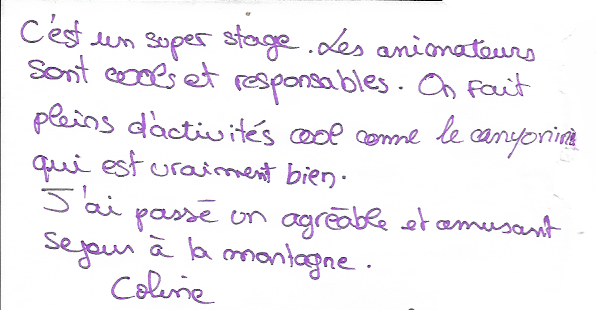 C'est un super stage. Les animateurs
sont cools et responsables. On fait
pleins d'activités cool comme le canyoning
qui est vraiment bien.
J'ai passé un agréable et amusant
sejour à la montagne.
Coline